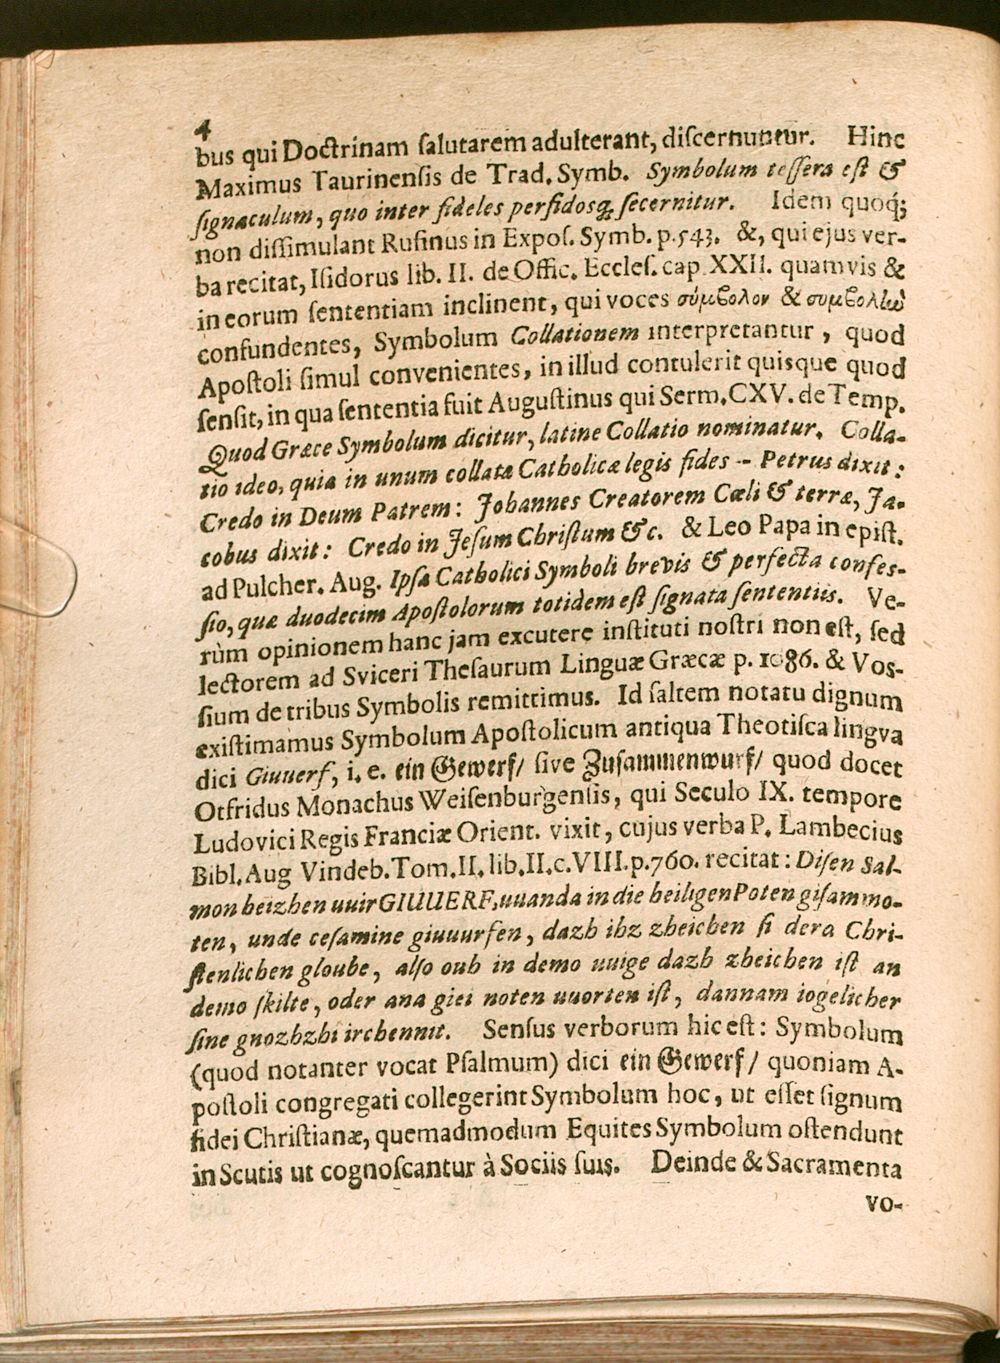 4
bus qui Doctrinam ſalutarem adulterant, diſcernuntur. Hinc
Maximus Taurinenſis de Trad. Symb. Symbolum teſſera eſt &
ſignaculum, quo inter fideles perfidosq́; ſecernitur. Idem quoq́;
non diſſimulant Rufinus in Expoſ. Symb. p. 543. &, qui ejus ver-
ba recitat, Iſidorus lib. II. de Offic. Eccleſ. cap XXII. quamvis &
in eorum ſententiam inclinent, qui voces σύμβολον & συμβολὴν
confundentes, Symbolum Collationem interpretantur, quod
Apoſtoli ſimul convenientes, in illud contulerit quisque quod
ſenſit, in qua ſententia fuit Auguſtinus qui Serm. CXV. de Temp.
Quod Græce Symbolum dicitur, latine Collatio nominatur. Colla-
tio ideo, quia in unum collata Catholicæ legis fides -- Petrus dixit:
Credo in Deum Patrem: Johannes Creatorem Cœli & terræ, Ja-
cobus dixit: Credo in Jeſum Chriſtum &c. & Leo Papa in epiſt.
ad Pulcher. Aug. Ipſa Catholici Symboli brevis & perfecta confes-
ſio, quæ duodecim Apoſtolorum totidem eſt ſignata ſententiis. Ve-
rùm opinionem hanc jam excutere inſtituti noſtri non eſt, ſed
lectorem ad Sviceri Theſaurum Linguæ Græcæ p. 1086. & Vos-
ſium de tribus Symbolis remittimus. Id ſaltem notatu dignum
exiſtimamus Symbolum Apoſtolicum antiqua Theotiſca lingva
dici Giuuerf, i. e. ein Gewerf/ ſive Zuſammenwurf/ quod docet
Otfridus Monachus Weiſenburgenſis, qui Seculo IX. tempore
Ludovici Regis Franciæ Orient. vixit, cujus verba P. Lambecius
Bibl. Aug Vindeb. Tom. II. lib. II. c. VIII. p. 760. recitat: Diſen Sal-
mon heizhen uuir GIUUERF, uuanda in die heiligen Poten giſammo-
ten, unde ceſamine giuuurfen, dazh ihz zheichen ſi dera Chri-
ſtenlichen gloube, alſo ouh in demo uuige dazh zheichen iſt an
demo ſkilte, oder ana giei noten uuorten iſt, dannam iogelicher
ſine gnozhzhi irchennit. Senſus verborum hic eſt: Symbolum
(quod notanter vocat Pſalmum) dici ein Gewerf/ quoniam A-
poſtoli congregati collegerint Symbolum hoc, ut eſſet ſignum
fidei Chriſtianæ, quemadmodum Equites Symbolum oſtendunt
in Scutis ut cognoſcantur à Sociis ſuis. Deinde & Sacramenta
vo-